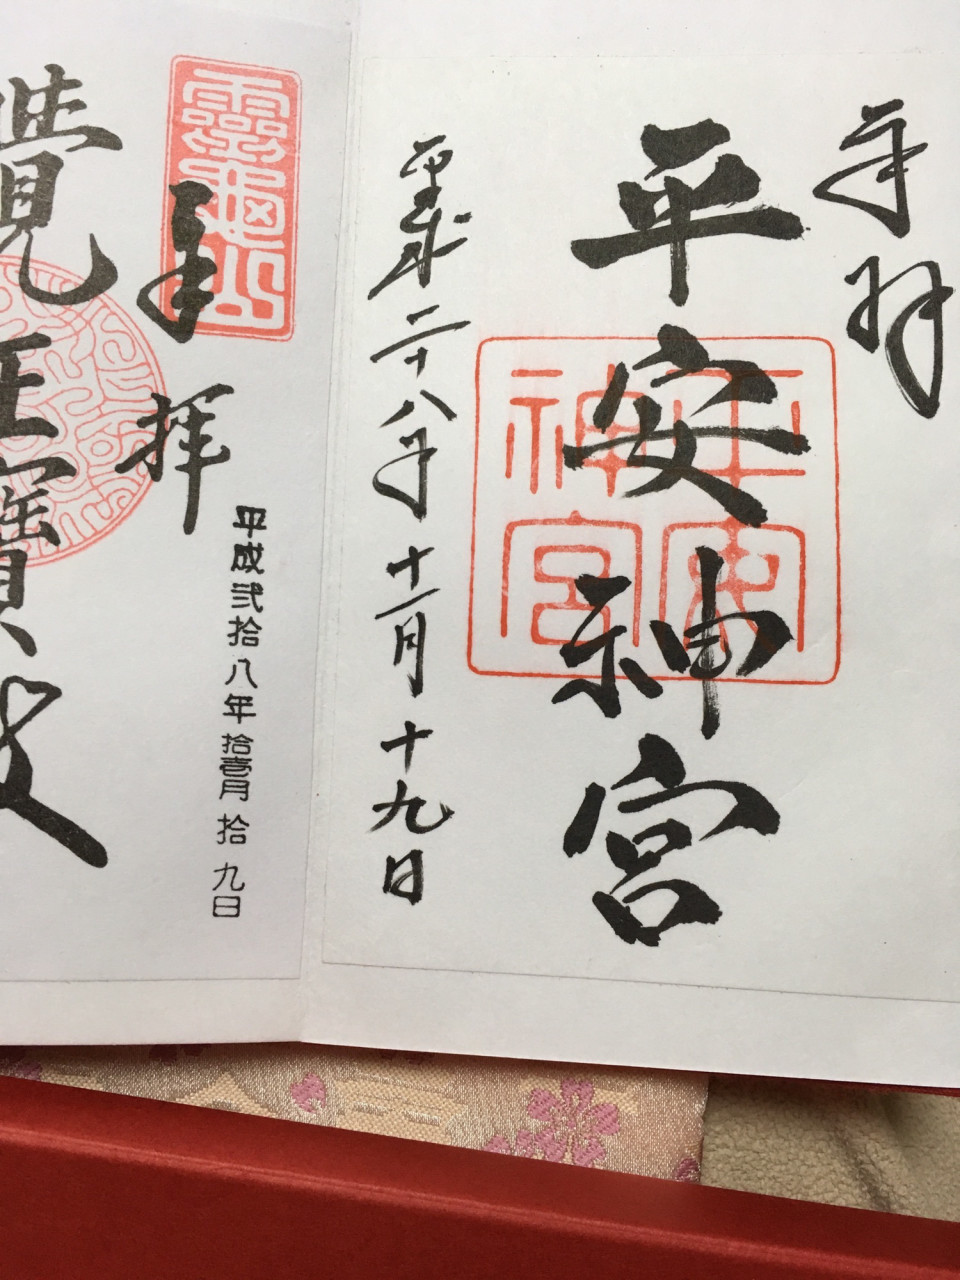 奉拝
平安神宮
平安神宮
平成二十八年十一月十九日
靈龜山
奉拝
平成弐拾八年拾壱月拾九日
覺王寶殿